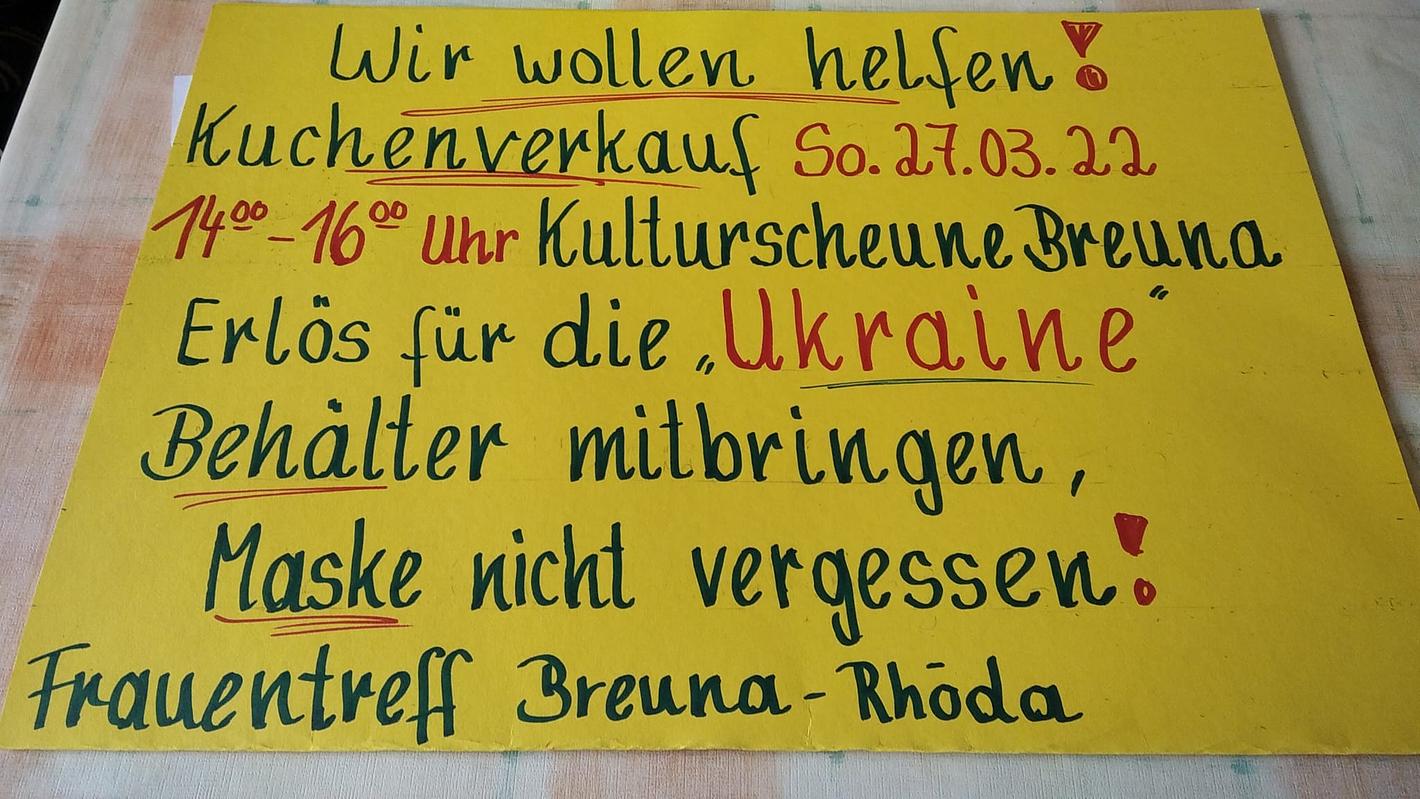 Wir wollen helfen!
Kuchenverkauf So. 27.03.22
14⁰⁰-16⁰⁰ Uhr Kulturscheune Breuna
Erlös für die „Ukraine“
Behälter mitbringen,
Maske nicht vergessen!
Frauentreff Breuna-Rhōda